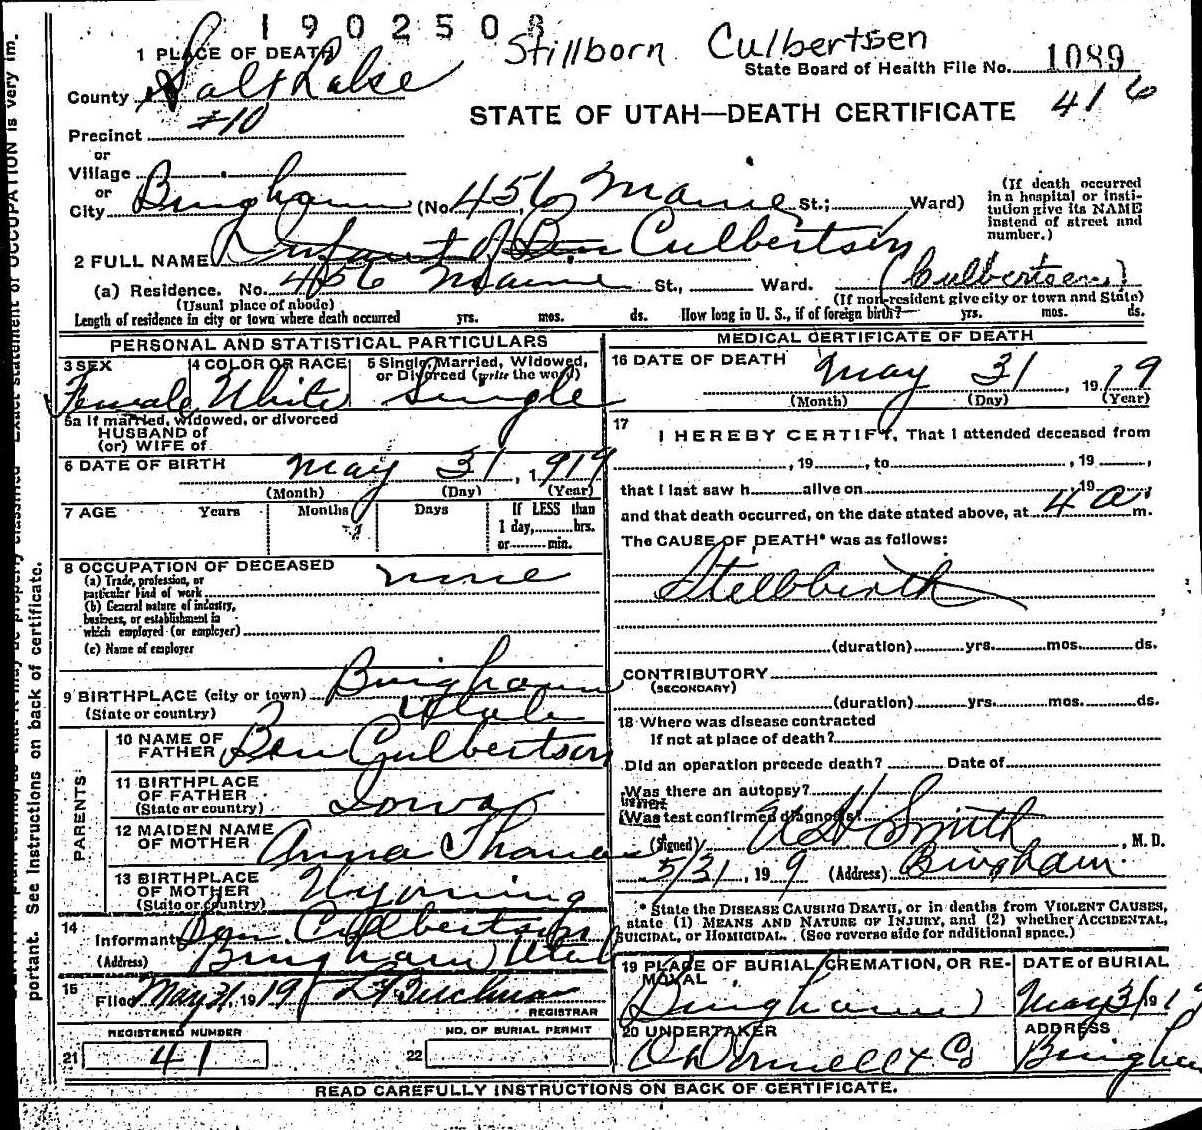 1902508
Stillborn Culbertsen
1 PLACE OF DEATH
State Board of Health File No. 1089
County Salt Lake
416
STATE OF UTAH—DEATH CERTIFICATE
Precinct #10
or
Village
or
City Bingham (No. 456 Maine St.; Ward)
(If death occurred
in a hospital or insti-
tution give its NAME
instead of street and
number.)
2 FULL NAME Infant of Ben Culbertson
(Culbertsen)
(a) Residence. No. 456 Maine St., Ward.
(Usual place of abode)
(If non-resident give city or town and State)
Length of residence in city or town where death occurred yrs. mos. ds. How long in U. S., if of foreign birth? yrs. mos. ds.
PERSONAL AND STATISTICAL PARTICULARS
3 SEX
Female
4 COLOR OR RACE
White
5 Single, Married, Widowed,
or Divorced (write the word)
Single
5a If married, widowed, or divorced
HUSBAND of
(or) WIFE of
6 DATE OF BIRTH May 31, 1919
(Month) (Day) (Year)
7 AGE Years Months Days
If LESS than
1 day, hrs.
or min.
8 OCCUPATION OF DECEASED
(a) Trade, profession, or
particular kind of work none
(b) General nature of industry,
business, or establishment in
which employed (or employer)
(c) Name of employer
9 BIRTHPLACE (city or town) Bingham
(State or country) Utah
PARENTS
10 NAME OF
FATHER Ben Culbertson
11 BIRTHPLACE
OF FATHER
(State or country) Iowa
12 MAIDEN NAME
OF MOTHER Anna Thomas
13 BIRTHPLACE
OF MOTHER
(State or country) Wyoming
14
Informant Ben Culbertson
(Address) Bingham Utah
15
Filed May 31, 1919
REGISTRAR
REGISTERED NUMBER
21 41
NO. OF BURIAL PERMIT
22
MEDICAL CERTIFICATE OF DEATH
16 DATE OF DEATH May 31, 1919
(Month) (Day) (Year)
17
I HEREBY CERTIFY, That I attended deceased from
, 19 , to , 19 ,
that I last saw h alive on , 19
and that death occurred, on the date stated above, at 4 a. m.
The CAUSE OF DEATH* was as follows:
Stillbirth
(duration) yrs. mos. ds.
CONTRIBUTORY
(SECONDARY)
(duration) yrs. mos. ds.
18 Where was disease contracted
If not at place of death?
Did an operation precede death? Date of
Was there an autopsy?
Was test confirmed diagnosis?
(Signed) Smith, M. D.
5/31, 1919 (Address) Bingham.
* State the DISEASE CAUSING DEATH, or in deaths from VIOLENT CAUSES,
state (1) MEANS AND NATURE OF INJURY, and (2) whether ACCIDENTAL,
SUICIDAL, or HOMICIDAL. (See reverse side for additional space.)
19 PLACE OF BURIAL, CREMATION, OR RE-
MOVAL
Bingham
DATE of BURIAL
May 31 191
20 UNDERTAKER
O'Donnell & Co
ADDRESS
Bingham
READ CAREFULLY INSTRUCTIONS ON BACK OF CERTIFICATE.
Exact statement of OCCUPATION is very im-
portant. See instructions on back of certificate.